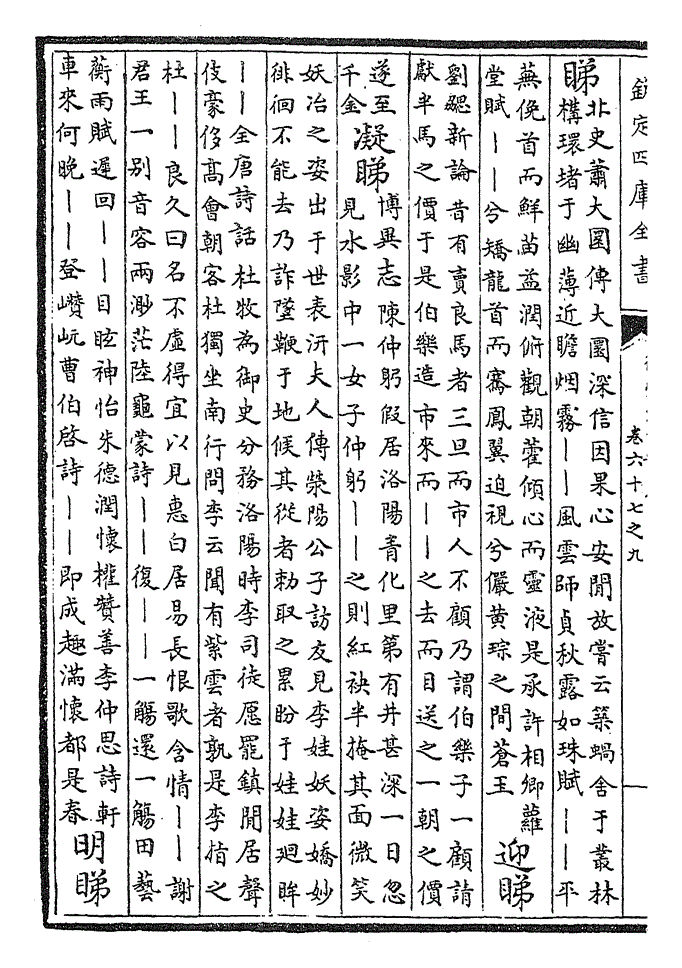 欽定四庫全書
卷六十七之九
一
睇
北史蕭大圜傳大圜深信因果心安閒故嘗云築蝸舍于叢林
構環堵于幽薄近瞻烟霧——風雲師貞秋露如珠賦——平
蕪俛首而鮮苗益潤俯觀朝藿傾心而靈液是承許相卿蘿
堂賦——兮矯龍首而騫鳳翼迫視兮儼黄琮之間蒼玉
迎睇
劉勰新論昔有賣良馬者三旦而市人不顧乃謂伯樂子一顧請
獻半馬之價于是伯樂造市來而——之去而目送之一朝之價
遂至
千金
凝睇
博異志陳仲躬假居洛陽青化里第有井甚深一日忽
見水影中一女子仲躬——之則紅袂半掩其面微笑
妖冶之姿出于世表汧夫人傳滎陽公子訪友見李娃妖姿嬌妙
徘徊不能去乃詐墜鞭于地候其從者勑取之累盼于娃娃廻眸
——全唐詩話杜牧為御史分務洛陽時李司徒愿罷鎮閒居聲
伎豪侈高會朝客杜獨坐南行問李云聞有紫雲者孰是李指之
杜——良久曰名不虛得宜以見惠白居易長恨歌含情——謝
君王一别音容兩渺茫陸龜蒙詩——復——一觴還一觴田藝
蘅雨賦遲回——目眩神怡朱德潤懷權贊善李仲思詩軒
車來何晚——登巑岏曹伯啓詩——即成趣滿懷都是春
明睇